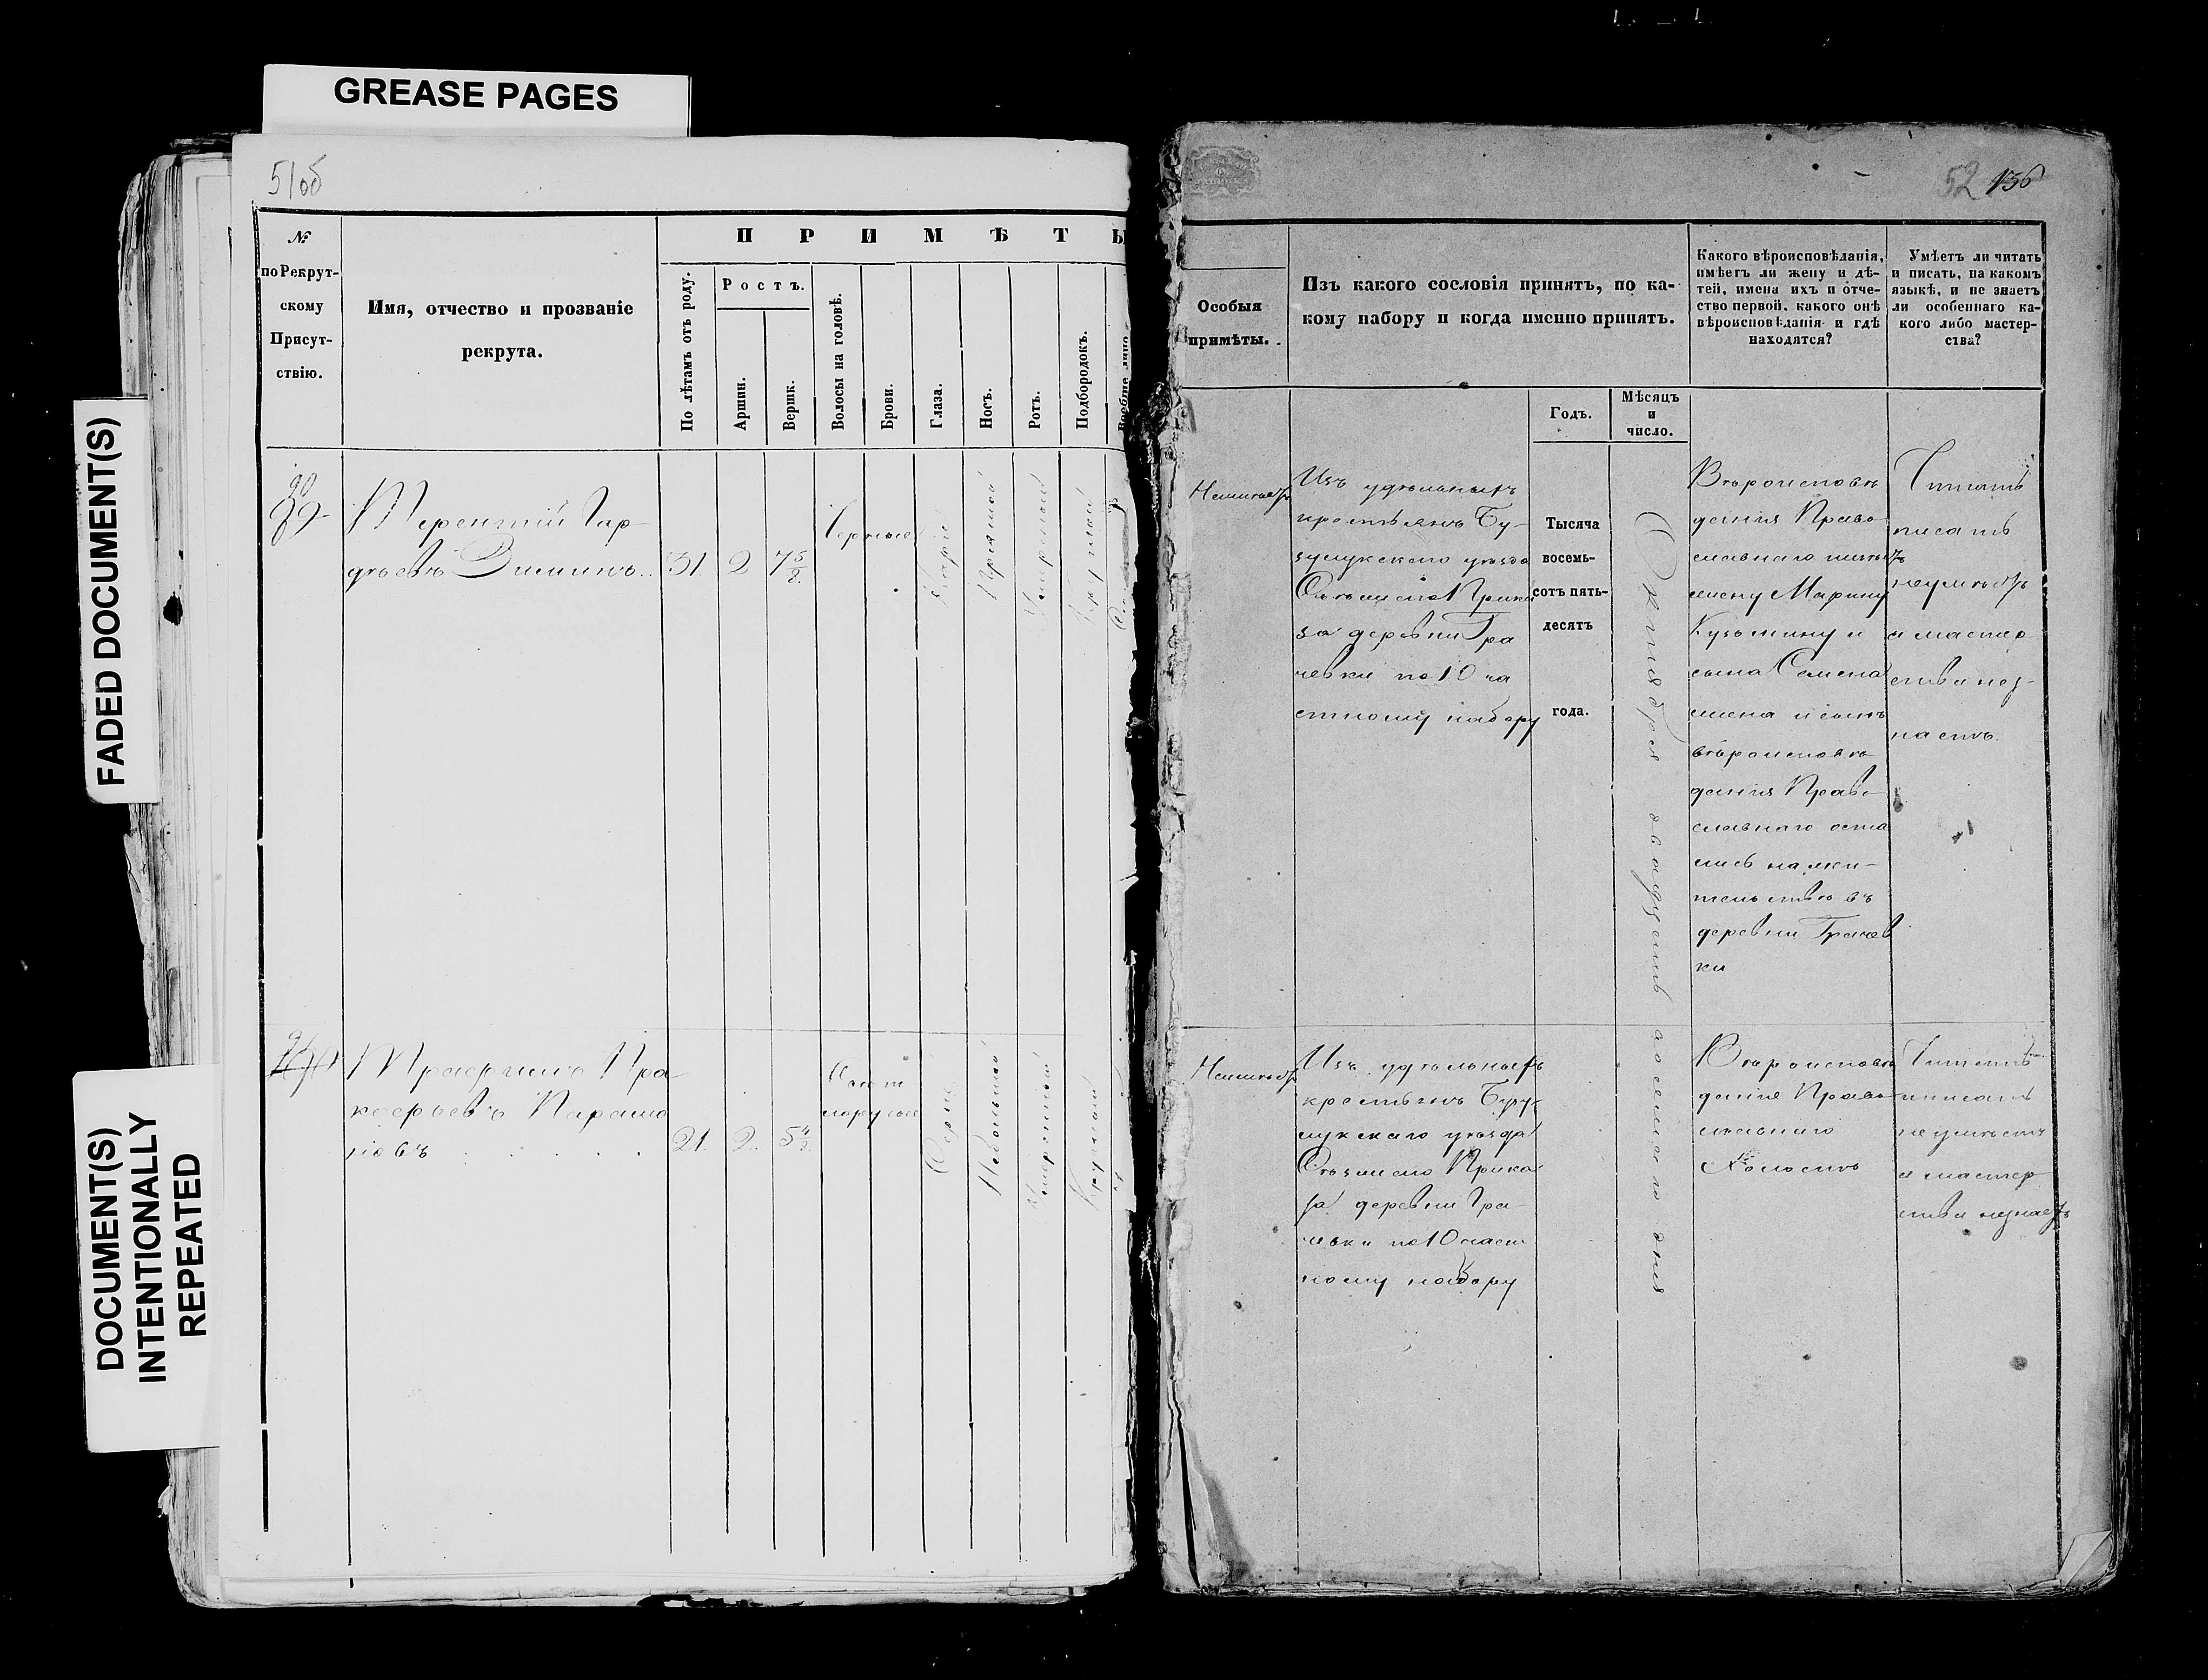 GREASE PAGES
FADED DOCUMENT(S)
DOCUMENT(S)
INTENTIONALLY
REPEATED
51об
№
по Рекрут-
скому
Присут-
ствію.
Имя, отчество и прозваніе
рекрута.
П Р И М Ѣ Т Ы
По лѣтамъ отъ роду.
Ростъ.
Аршин.
Вершк.
Волосы на головѣ.
Брови.
Глаза.
Носъ.
Ротъ.
Подбородокъ.
Вообще лицо
89
Терентій Гор
дѣевъ Зиминъ
31
2
7 5/8
Черные
Каріе
Прямой
Умѣрный
Круглый
Прокофьевъ
21.
2.
Сѣрые
Небольшой
Умѣренный
Круглый
52 156
Особыя
примѣты.
Изъ какого сословія принятъ, по ка-
кому набору и когда именно принятъ.
Какого вѣроисповѣданія,
имѣетъ ли жену и дѣ-
тей, имена ихъ и отче-
ство первой, какого онѣ
вѣроисповѣданія и гдѣ
находятся?
Умѣетъ ли читать
и писать, на какомъ
языкѣ, и не знаетъ
ли особеннаго ка-
кого либо мастер-
ства?
Годъ.
Мѣсяцъ
и
число.
Неимѣетъ
Изъ удѣльныхъ
крестьянъ Бу-
зулукскаго уѣзда
Прика
за деревни Гра
чевки по 10 ча
стному набору
Тысяча
восемь-
сотъ пять-
десятъ
года.
Октября двадцать осьмого дня
Вѣроисповѣ
данія Право
славнаго имѣетъ
жену Марину
Кузьмину и
сына Семена
жена и сынъ
вѣроисповѣ
данія Право
славнаго оста
лись на жи-
тельствѣ въ
деревни Грачев
ки
Читать
писать
неумѣетъ
и мастер
ства нез-
наетъ.
Неимѣетъ
Изъ удѣльныхъ
крестьянъ Бузу
лукскаго уѣзда
Прика
за деревни Гра-
чевки по 10 част
ному набору
Вѣроисповѣ
данія Право
славнаго
Холостъ
Читать
писать
неумѣетъ
и мастер
ства незнаетъ